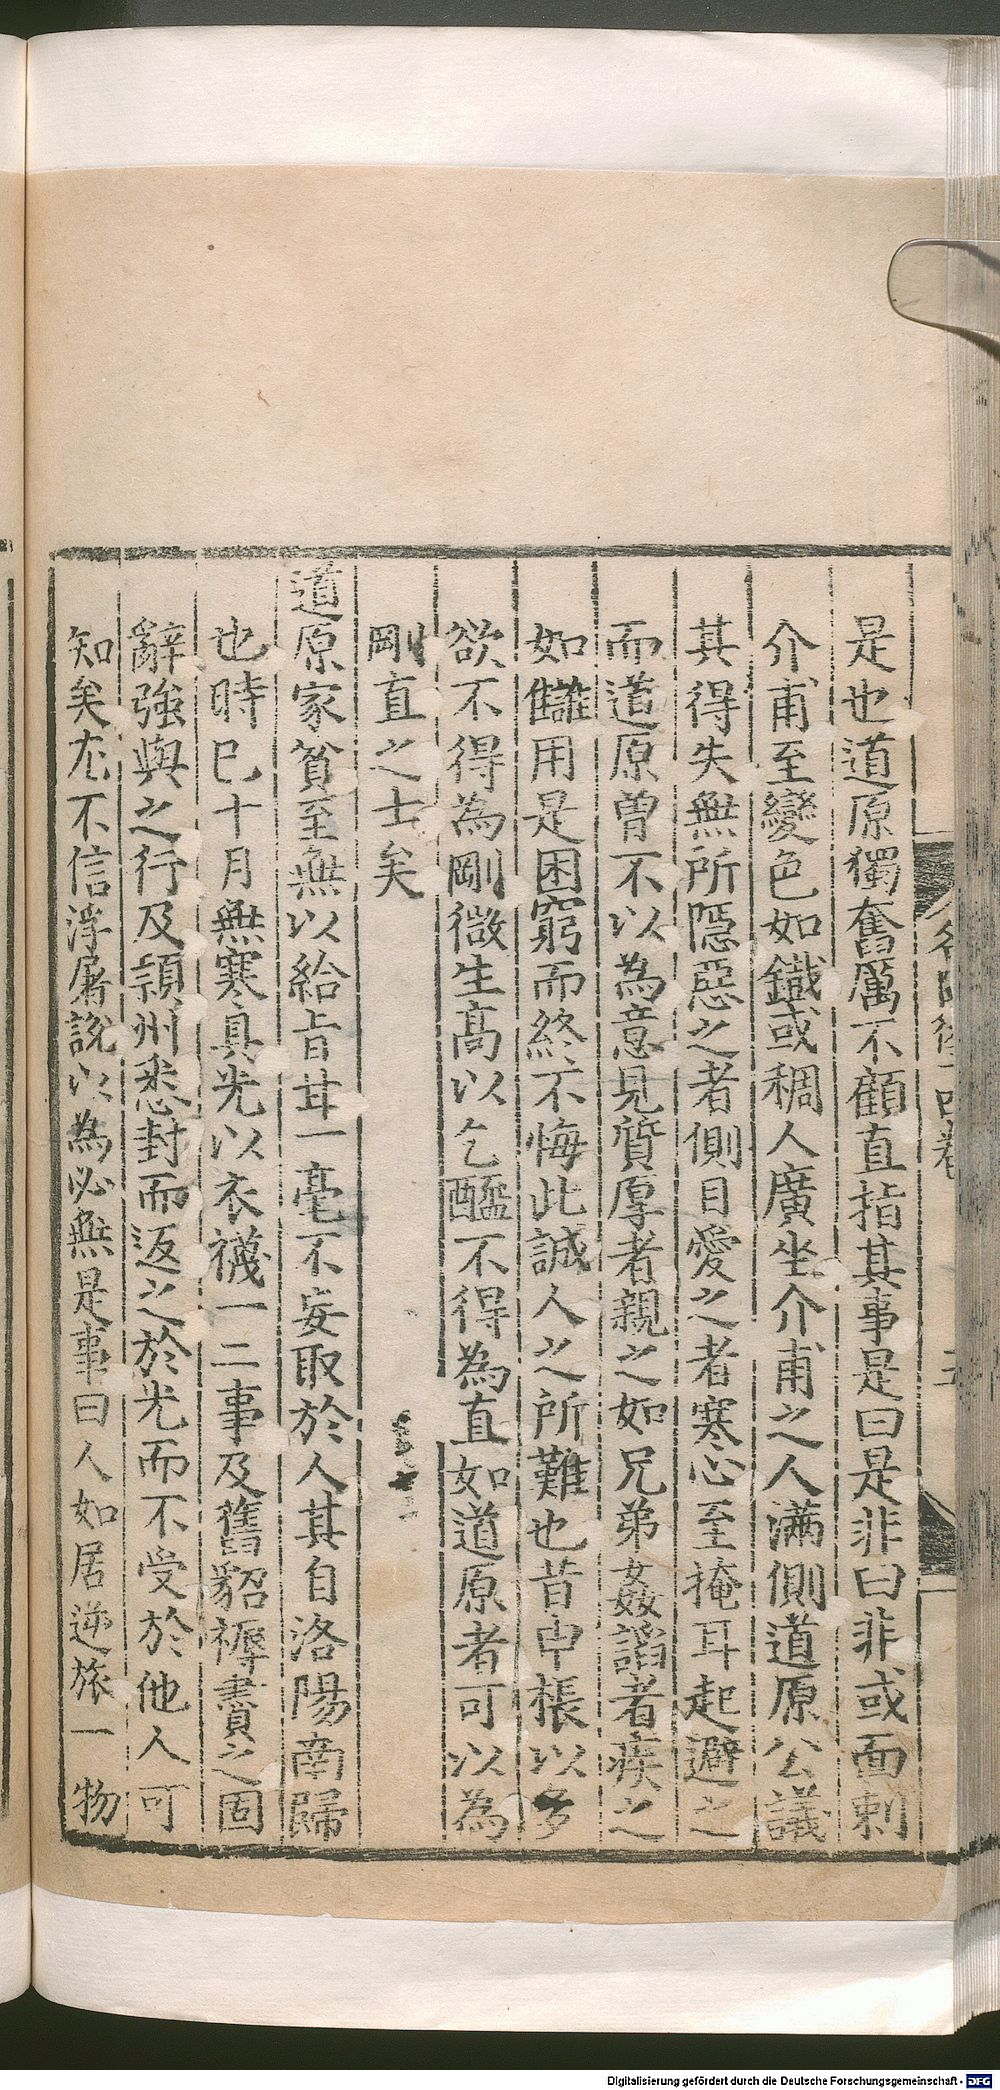 是也道原獨奮厲不顧直指其事是曰是非曰非或面刺
介甫至變色如鐵或稠人廣坐介甫之人滿側道原公議
其得失無所隱惡之者側目愛之者寒心至掩耳起避之
而道原曾不以為意見質厚者親之如兄弟姦諂者疾之
如讎用是困窮而終不悔此誠人之所難也昔申棖以多
欲不得為剛微生高以乞醯不得為直如道原者可以為
剛直之士矣
道原家貧至無以給旨甘一毫不妄取於人其自洛陽南歸
也時已十月無寒具光以衣襪一二事及舊貂褥賮之固
辭強與之行及潁州悉封而返之於光而不受於他人可
知矣尤不信浮屠說以為必無是事曰人如居逆旅一物
Digitalisierung gefördert durch die Deutsche Forschungsgemeinschaft - DFG